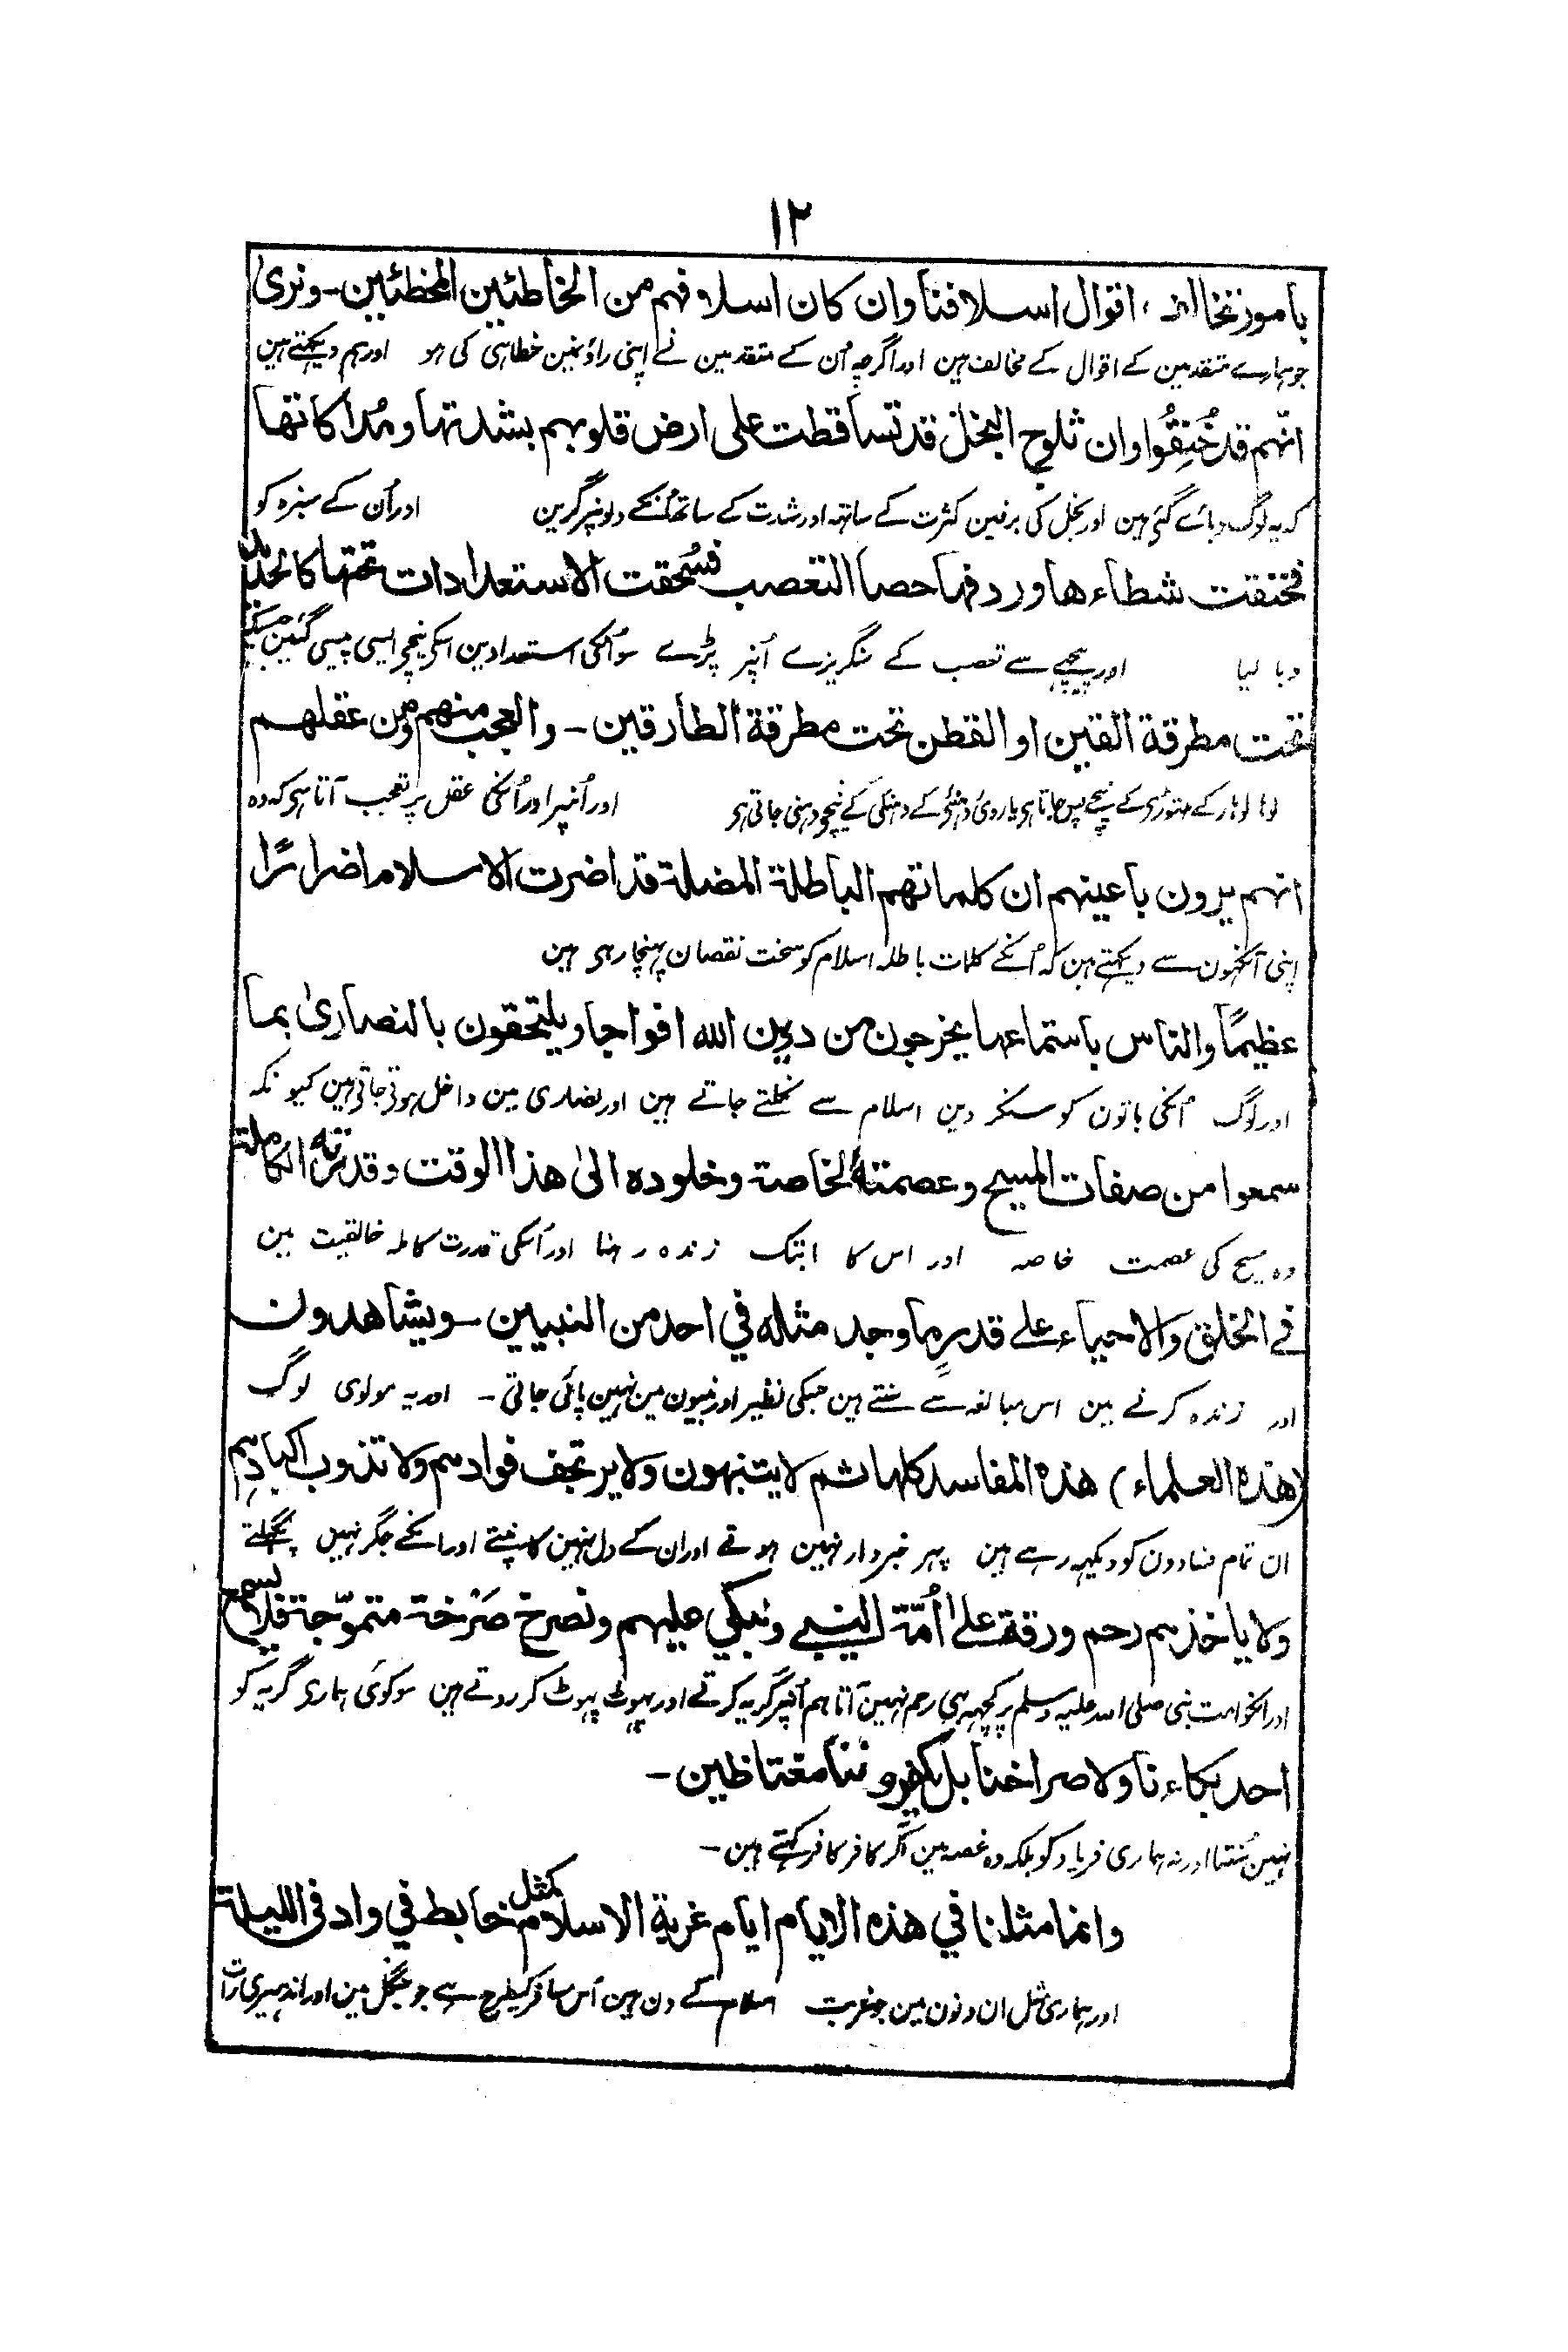 ١٢
بامور تخالف اقوال اسلافنا وان كان اسلافهم من الخاطئين المخطئين - ونرىٰ
جو ہمارے متقدمین کے اقوال کے مخالف ہین اور اگرچہ اُن کے متقدمین نے اپنی راؤنمین خطا ہی کی ہو اور ہم دیکہتے ہین
انّهم قد خُنِقُوا وان ثلوج البخل قد تساقطت على ارض قلوبهم بشدتها ومُداكاتها
کہ یہ لوگ دبائے گئی ہین اور بخل کی برفین کثرت کے ساتہہ اور شدت کے ساتھ اُنکے دلونپر گرین اور اُن کے سبزہ کو
فخنقت شطاءها وردفها حصا التعصب فسُحقت الاستعدادات تحتها كالحديد
دبا لیا اور پیچہے سے تعصب کے سنگریزے اُنپر پڑے سو اُنکی استعدادین اسکے نیچے ایسی پیسی گئین جیسے
تحت مطرقة القين او القطن تحت مطرقة الطارقين - والعجب منهم ومن عقلهم
لوہا لوہار کے ہتوڑی کے نیچے پس جاتا ہی یا روئی دہنئے کے دہنکی کے نیچے دہنی جاتی ہی اور اُنپر اور اُنکی عقل پر تعجب آتا ہی کہ وہ
انهم يرون باعينهم ان كلماتهم الباطلة المضلة قد اضرت الاسلام اضرارًا
اپنی آنکہون سے دیکہتے ہین کہ اُنکے کلمات باطلہ اسلام کو سخت نقصان پہنچا رہی ہین
عظيمًا والناس باستماعها يخرجون من دين الله افواجا ويلتحقون بالنصارىٰ بما
اور لوگ اُنکی باتون کو سنکر دین اسلام سے نکلتے جاتے ہین اور نصاری مین داخل ہوتی جاتی ہین کیونکہ
سمعوا من صفات المسيح وعصمته الخاصة وخلوده الىٰ هذا الوقت وقدرته الكاملة
وہ مسیح کی عصمت خاصہ اور اس کا ابتک زندہ رہنا اور اُسکی قدرت کاملہ خالقیت مین
فے الخلق والاحياء علے قدرٍ ما وجد مثله في احد من النبيين - ويشاهدون
اور زندہ کرنے مین اس مبالغہ سے سنتے ہین جسکی نظیر اور نبیون مین نہین پائی جاتی - اور یہ مولوی لوگ
(هذه العلماء) هذه المفاسد كلها ثم لا يتنبهون ولا يرتجف فوادهم ولا تذوب اكبادهم
ان تمام فسادون کو دیکہہ رہے ہین پہر خبردار نہین ہوتے اور ان کے دل نہین کانپتے اور انکے جگر نہین پگہلتے
ولا ياخذهم رحم ورقة على اُمّة النبي ونبكي عليهم ونصرخ صَرْخة متموّجة فلا يسمع
اور انکو امت نبی صلی اللہ علیہ وسلم پر کچہہ ہی رحم نہین آتا ہم اُنپر گریہ کرتے اور پہوٹ پہوٹ کر روتے ہین سو کوئی ہماری گریہ کو
احد بكاءنا ولا صراخنا بل يكفروننا مغتاظين -
نہین سُنتا اور نہ ہماری فریاد کو بلکہ وہ غصہ مین آکر کافر کافر کہتے ہین -
وانما مثلنا في هذه الايام ايام غربة الاسلام كمثل خابط في واد في الليلة
اور ہماری مثل ان دنون مین جو غربت اسلام کے دن ہین اُس مسافر کیطرح ہے جو جنگل مین اور اندہیری رات